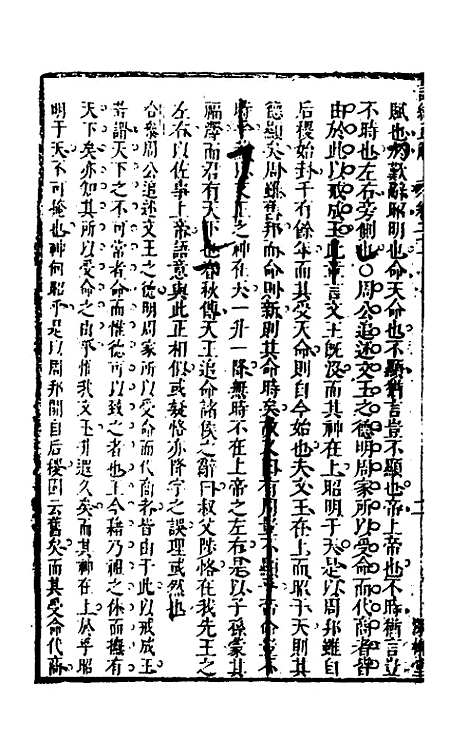 賦也於歎辭昭明也命天命也不顯猶言豈不顯也帝上帝也不時猶言豈
不時也左右旁側也〇周公追述文王之德明周家所以受命而代商者皆
由於此以戒成王此章言文王既沒而其神在上昭明于天是以周邦雖自
后稷始封千有餘年而其受天命則自今始也夫文王在上而昭于天則其
德顯矣周雖舊邦而命則新則其命時矣故又曰有周豈不顯乎帝命豈不
時乎以文王之神在天一升一降無時不在上帝之左右是以子孫蒙其
福澤而君有天下也春秋傳天王追命諸侯之辭曰叔父陟恪在我先王之
左右以佐事上帝語意與此正相似或疑恪亦降字之誤理或然也
合參周公追述文王之德明周家所以受命而代商者皆由于此以戒成王
若謂天下之不可常者命而惟德可以致之者也王今藉乃祖之休而撫有
天下矣亦知其所以受命之由乎惟我文王升遐久矣而其神在上於乎昭
明于天不可掩也神何昭乎是以周邦開自后稷固云舊矣而其受命代商